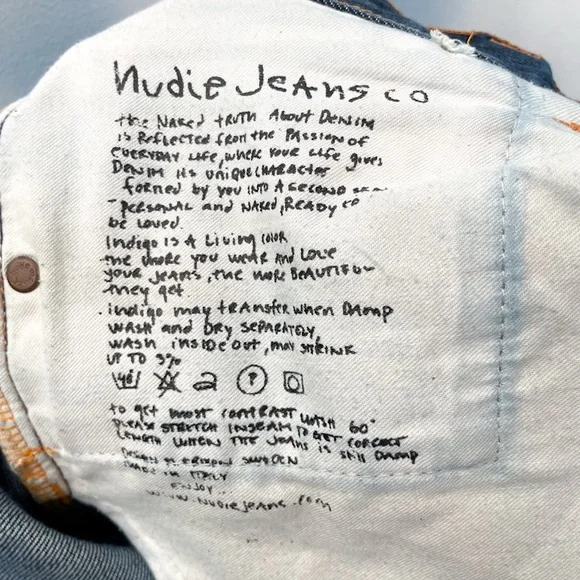 Nudie Jeans co
the Naked truth About Denim
is Reflected from the Passion of
everyday Life, where your Life gives
Denim its unique character
formed by you into a second
personal and naked, Ready to
be loved.
Indigo is A Living color
the more you wear and Love
your Jeans, the more Beautiful
they get
. indigo may transfer when Damp
Wash and Dry separately,
wash inside out, may shrink
up to 3%
to get most contrast wash 60°
Please stretch inseam to get correct
Length when the Jeans is still Damp
Sweden
made in Italy
Enjoy..
www.nudiejeans.com